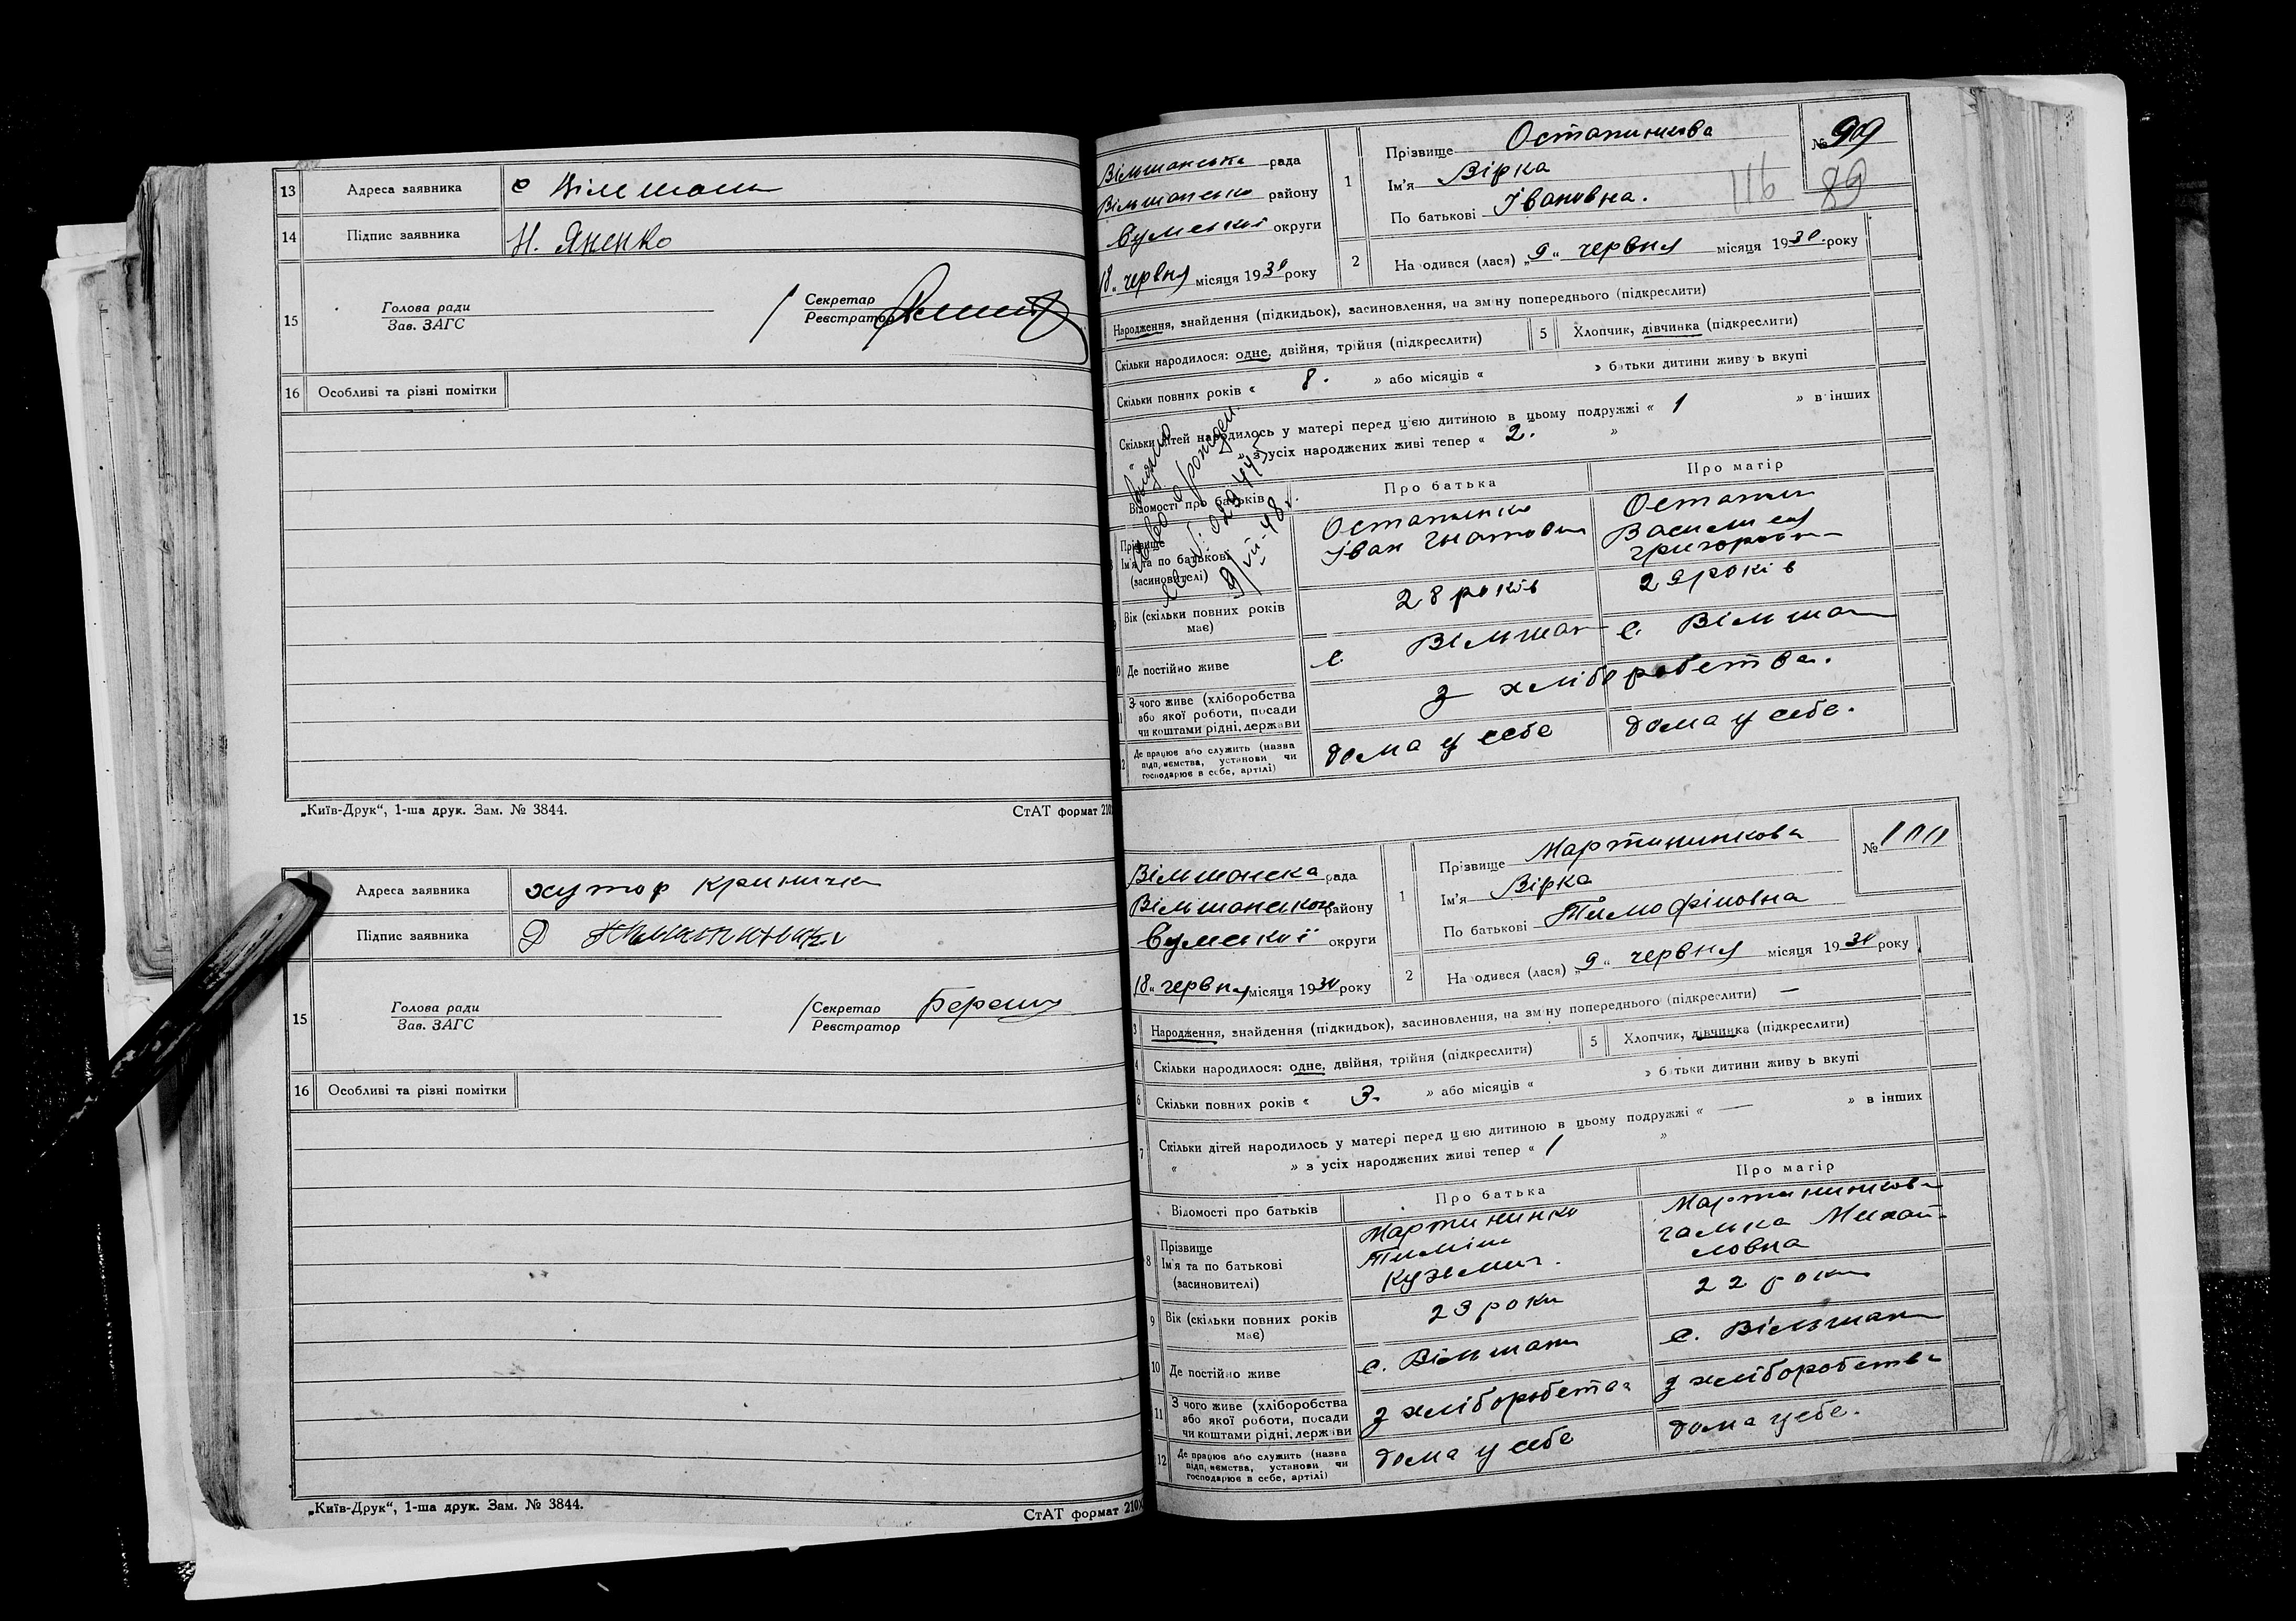 13 Адреса заявника с Вільшани
14 Підпис заявника Н. Яненко
15 Голова ради
Зав. ЗАГС
Секретар
Реєстратор
16 Особливі та різні помітки
„Київ-Друк“, 1-ша друк. Зам. № 3844. СтАТ формат 210
Адреса заявника хутор Криничка
Підпис заявника
15 Голова ради
Зав. ЗАГС
Секретар
Реєстратор
16 Особливі та різні помітки
„Київ-Друк“, 1-ша друк. Зам. № 3844. СтАТ формат 210X
Вільшанська рада
Вільшансько району
Сумської округи
18 „ червня місяця 1930 року
1 Прізвище Остапишева
Ім'я Вірка
По батькові Івановна.
№ 99
116 89
2 На одився (лася) „9“ червня місяця 1930 року
Народження, знайдення (підкидьок), засиновлення, на зміну попереднього (підкреслити)
Скільки народилося: одне, двійня, трійня (підкреслити) 5 Хлопчик, дівчинка (підкреслити)
Скільки повних років « 8. » або місяців « » батьки дитини живуь вкупі
Скільки дітей народилось у матері перед цією дитиною в цьому подружжі « 1 » в інших
« » з усіх народжених живі тепер « 2. »
9/VII-48 г.
Відомості про батьків Про батька Про матір
Прізвище
Ім'я та по батькові
(засиновителі)
Іван Гнатович
Вік (скільки повних років має) 28 років 29 років
Де постійно живе с. Вільшан с. Вільшан
З чого живе (хліборобства
або якої роботи, посади
чи коштами рідні, держави
з хліборобства.
Де працює або служить (назва
підприємства, установи чи
господарює в себе, артілі)
дома у себе дома у себе.
Вільшанска рада
Вільшанськои району
Сумської округи
18 „ червня місяця 1930 року
1 Прізвище Мартиненкова
Ім'я Вірка
По батькові Тимофіновна
№ 100
2 На одився (лася) „9“ червня місяця 1930 року
3 Народження, знайдення (підкидьок), засиновлення, на зміну попереднього (підкреслити) —
4 Скільки народилося: одне, двійня, трійня (підкреслити) 5 Хлопчик, дівчинка (підкреслити)
6 Скільки повних років « 3. » або місяців « » батьки дитини живуь вкупі
7 Скільки дітей народилось у матері перед цією дитиною в цьому подружжі « — » в інших
« » з усіх народжених живі тепер « 1 »
Відомості про батьків Про батька Про матір
8 Прізвище
Ім'я та по батькові
(засиновителі)
Мартиненко
Тиміш
Кузьмич.
Мартиненкова
Галька Михай-
ловна
9 Вік (скільки повних років має) 23 роки 22 роки
10 Де постійно живе с. Вільшани с. Вільшани
11 З чого живе (хліборобства
або якої роботи, посади
чи коштами рідні, держави
з хліборобства з хліборобства
12 Де працює або служить (назва
підприємства, установи чи
господарює в себе, артілі)
дома у себе дома у себе.